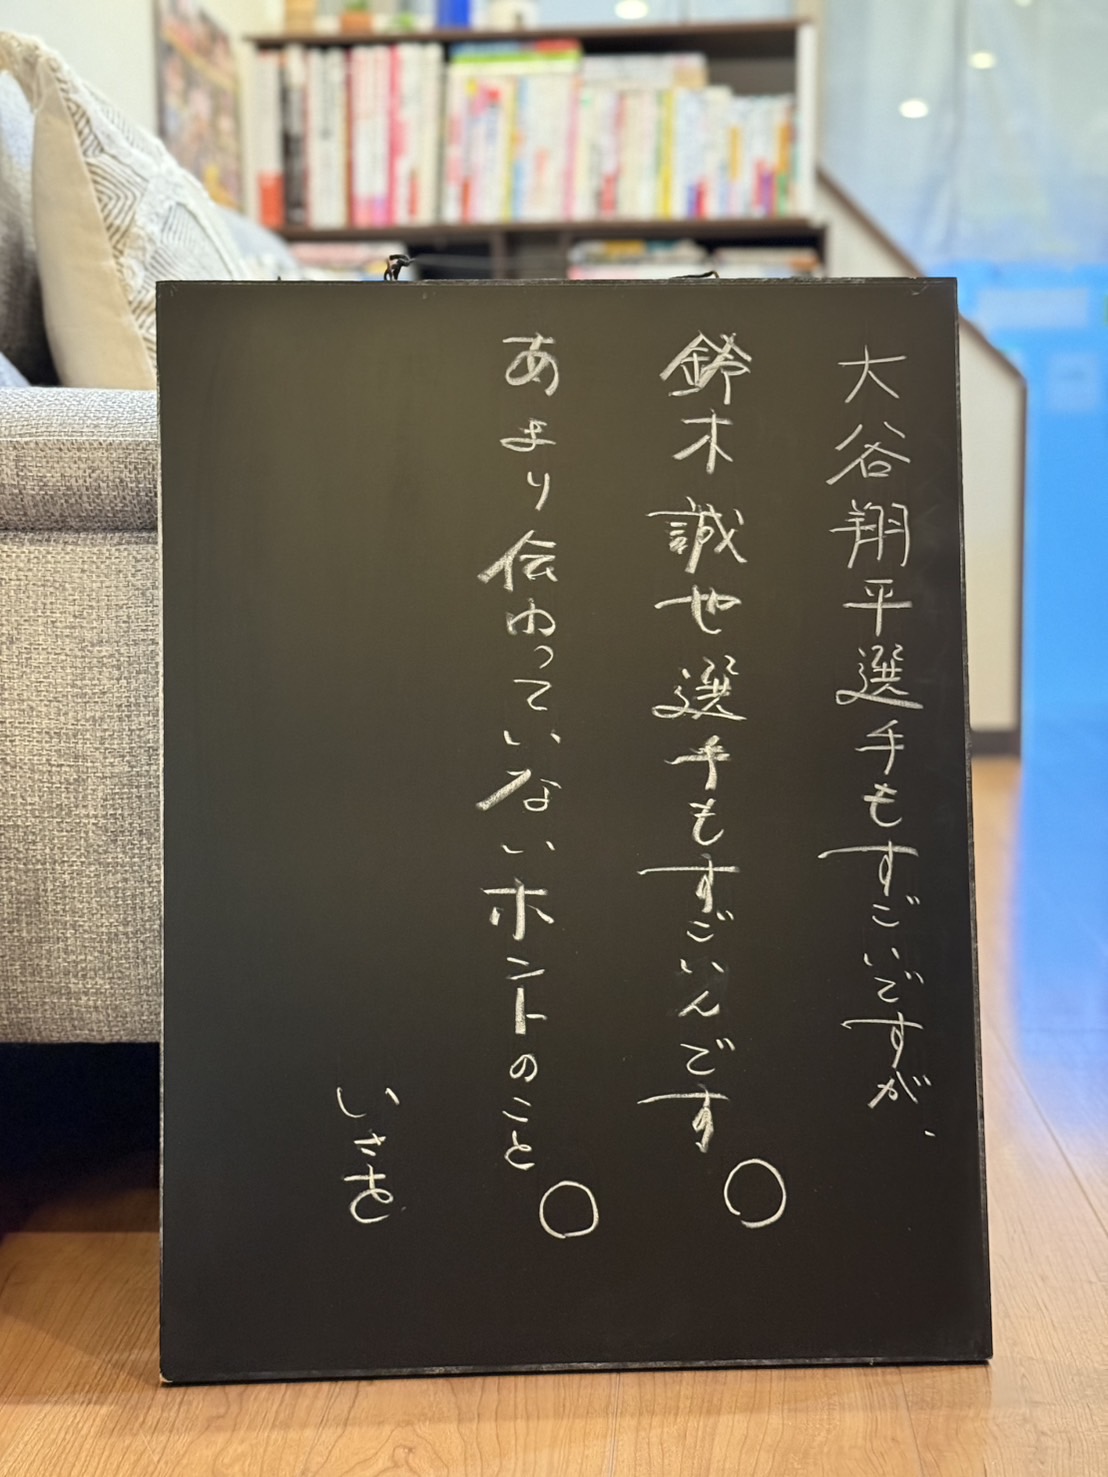 大谷翔平選手もすごいですが、
鈴木誠也選手もすごいんです。
あまり伝わっていないホントのこと。
いさを